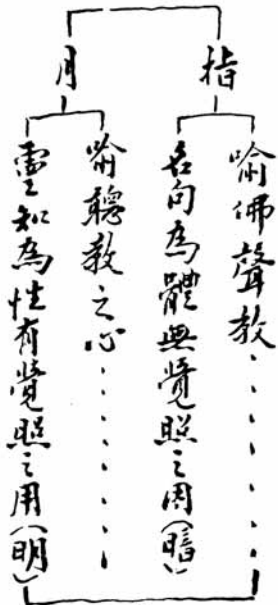 指
喻佛聲教
名句為體無覺照之用(暗)
月
喻聽教之心
靈知為性有覺照之用(明)